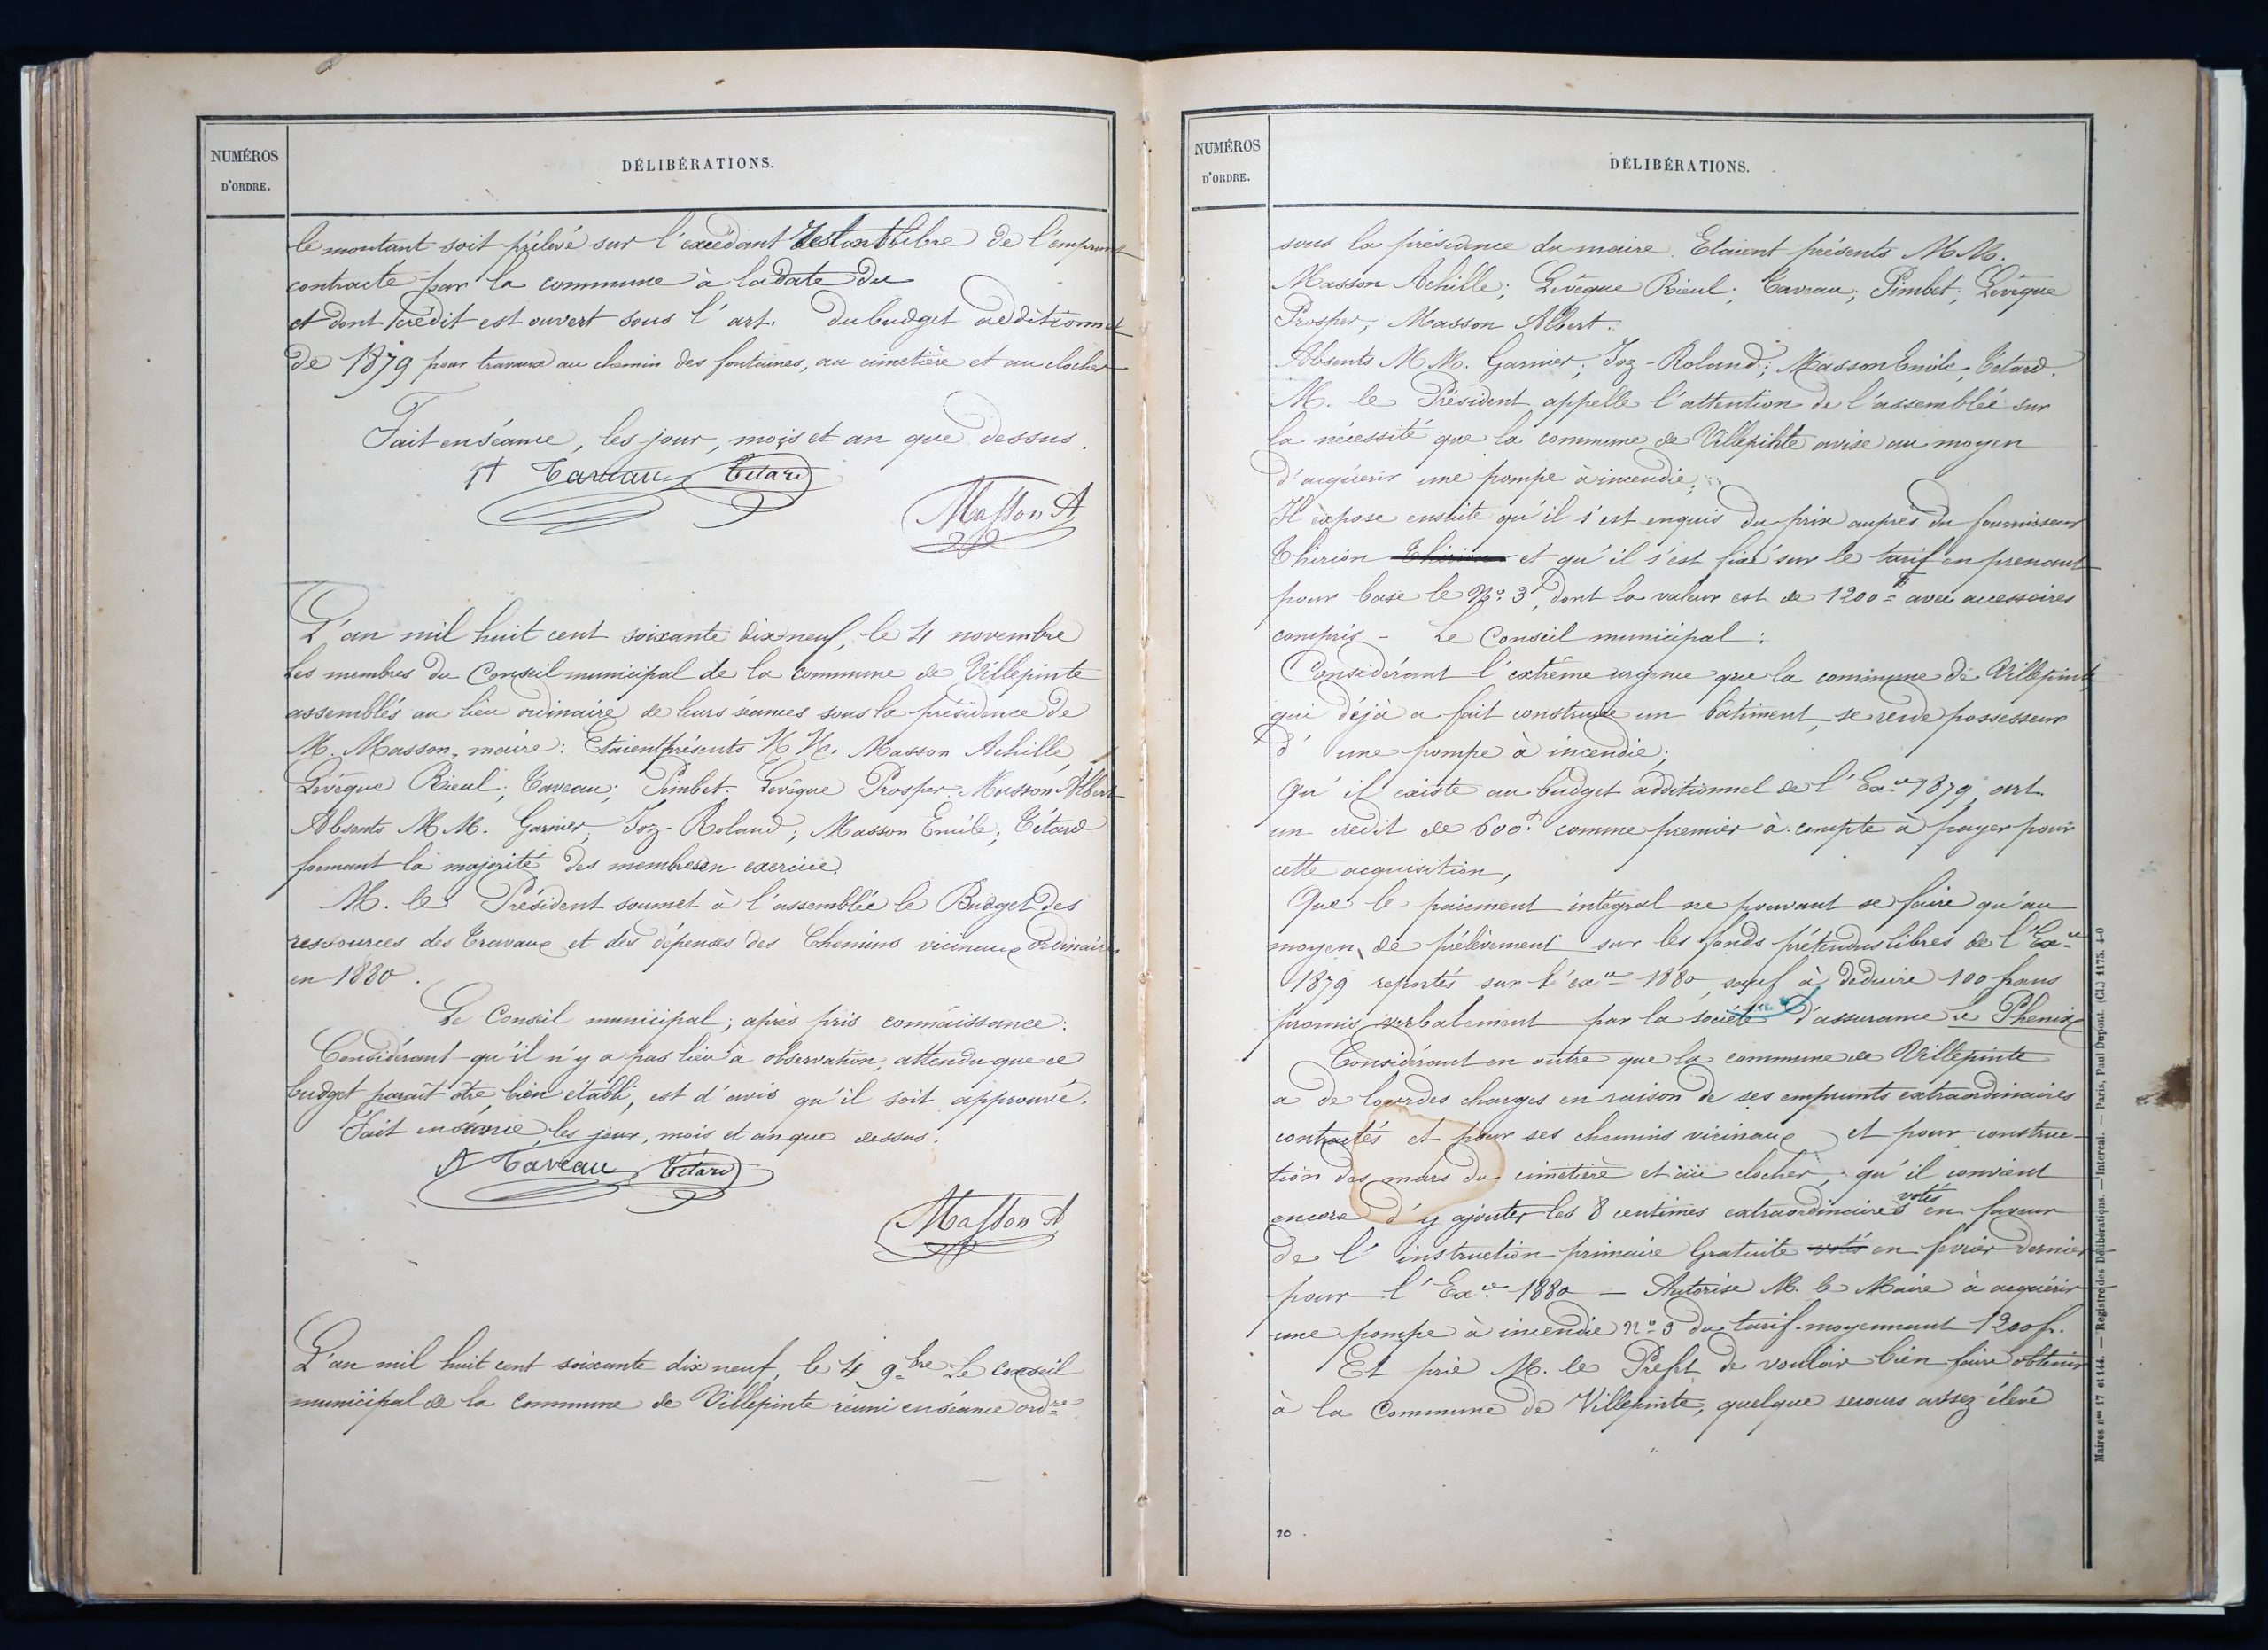 NUMÉROS
D'ORDRE.
DÉLIBÉRATIONS.
le montant soit prélevé sur l'excédant restant libre de l'emprunt
contracté par la commune à la date du
et dont crédit est ouvert sous l'art. du budget additionnel
de 1879 pour travaux au chemin des fontaines, au cimetière et au clocher
Fait en séance, les jour, mois et an que dessus.
Taveau Tétard
Masson A
L'an mil huit cent soixante dix neuf, le 4 novembre
Les membres du Conseil municipal de la commune de Villepinte
assemblés au lieu ordinaire de leurs séances sous la présidence de
M. Masson, maire: Etaient présents M M. Masson Achille,
Lévêque Rieul; Taveau; Pimbet; Lévêque Prosper; Masson Albert
Absents M M. Garnier; Joz-Roland; Masson Emile; Tétard
formant la majorité des membres en exercice.
M. le Président soumet à l'assemblée le Budget des
ressources des Travaux et des dépenses des Chemins vicinaux ordinaires
en 1880.
Le Conseil municipal; après pris connaissance:
Considérant qu'il n'y a pas lieu à observation, attendu que ce
budget paraît être bien établi, est d'avis qu'il soit approuvé.
Fait en séance, les jour, mois et an que dessus.
Taveau Tétard
Masson A
L'an mil huit cent soixante dix neuf, le 4 9bre Le conseil
municipal de la Commune de Villepinte réuni en séance ordre
NUMÉROS
D'ORDRE.
DÉLIBÉRATIONS.
sous la présidence du maire. Etaient présents M M.
Masson Achille; Lévêque Rieul; Taveau; Pimbet; Lévêque
Prosper; Masson Albert.
Absents M M. Garnier; Joz-Roland; Masson Emile; Tétard.
M. le Président appelle l'attention de l'assemblée sur
la nécessité que la commune de Villepinte avise au moyen
d'acquérir une pompe à incendie;
Il expose ensuite qu'il s'est enquis du prix auprès du fournisseur
Thirion Thirion et qu'il s'est fixé sur le tarif en prenant
pour base le No. 3, dont la valeur est de 1200 f avec accessoires
compris - Le Conseil municipal:
Considérant l'extrême urgence que la commune de Villepinte
qui déjà a fait construire un bâtiment, se rende possesseur
d'une pompe à incendie;
Qu'il existe au budget additionnel de l'Exce 1879, art.
un crédit de 600f comme premier à compte à payer pour
cette acquisition,
Que le paiement intégral ne pouvant se faire qu'au
moyen de prélèvement sur les fonds prétendus libres de l'Exce
1879 reportés sur l'exce 1880, sauf à déduire 100 francs
promis verbalement par la société d'assurance le Phenix
Considérant en outre que la commune de Villepinte
a de lourdes charges en raison de ses emprunts extraordinaires
contractés et pour ses chemins vicinaux et pour construc-
tion des murs du cimetière et au clocher, qu'il convient
encore d'y ajouter les 8 centimes extraordinaires votés en faveur
de l'instruction primaire Gratuite votés en fevrier dernier
pour l'Exce 1880 — Autorise M. le Maire à acquérir
une pompe à incendie No 3 du tarif moyennant 1200 fr.
Et prie M. le Préfet de vouloir bien faire obtenir
à la Commune de Villepinte, quelque secours assez élevé
20
Maires nos 17 et 144. — Registre des Délibérations. — Intercal. — Paris, Paul Dupont. (Cl.) 1175. 4-0